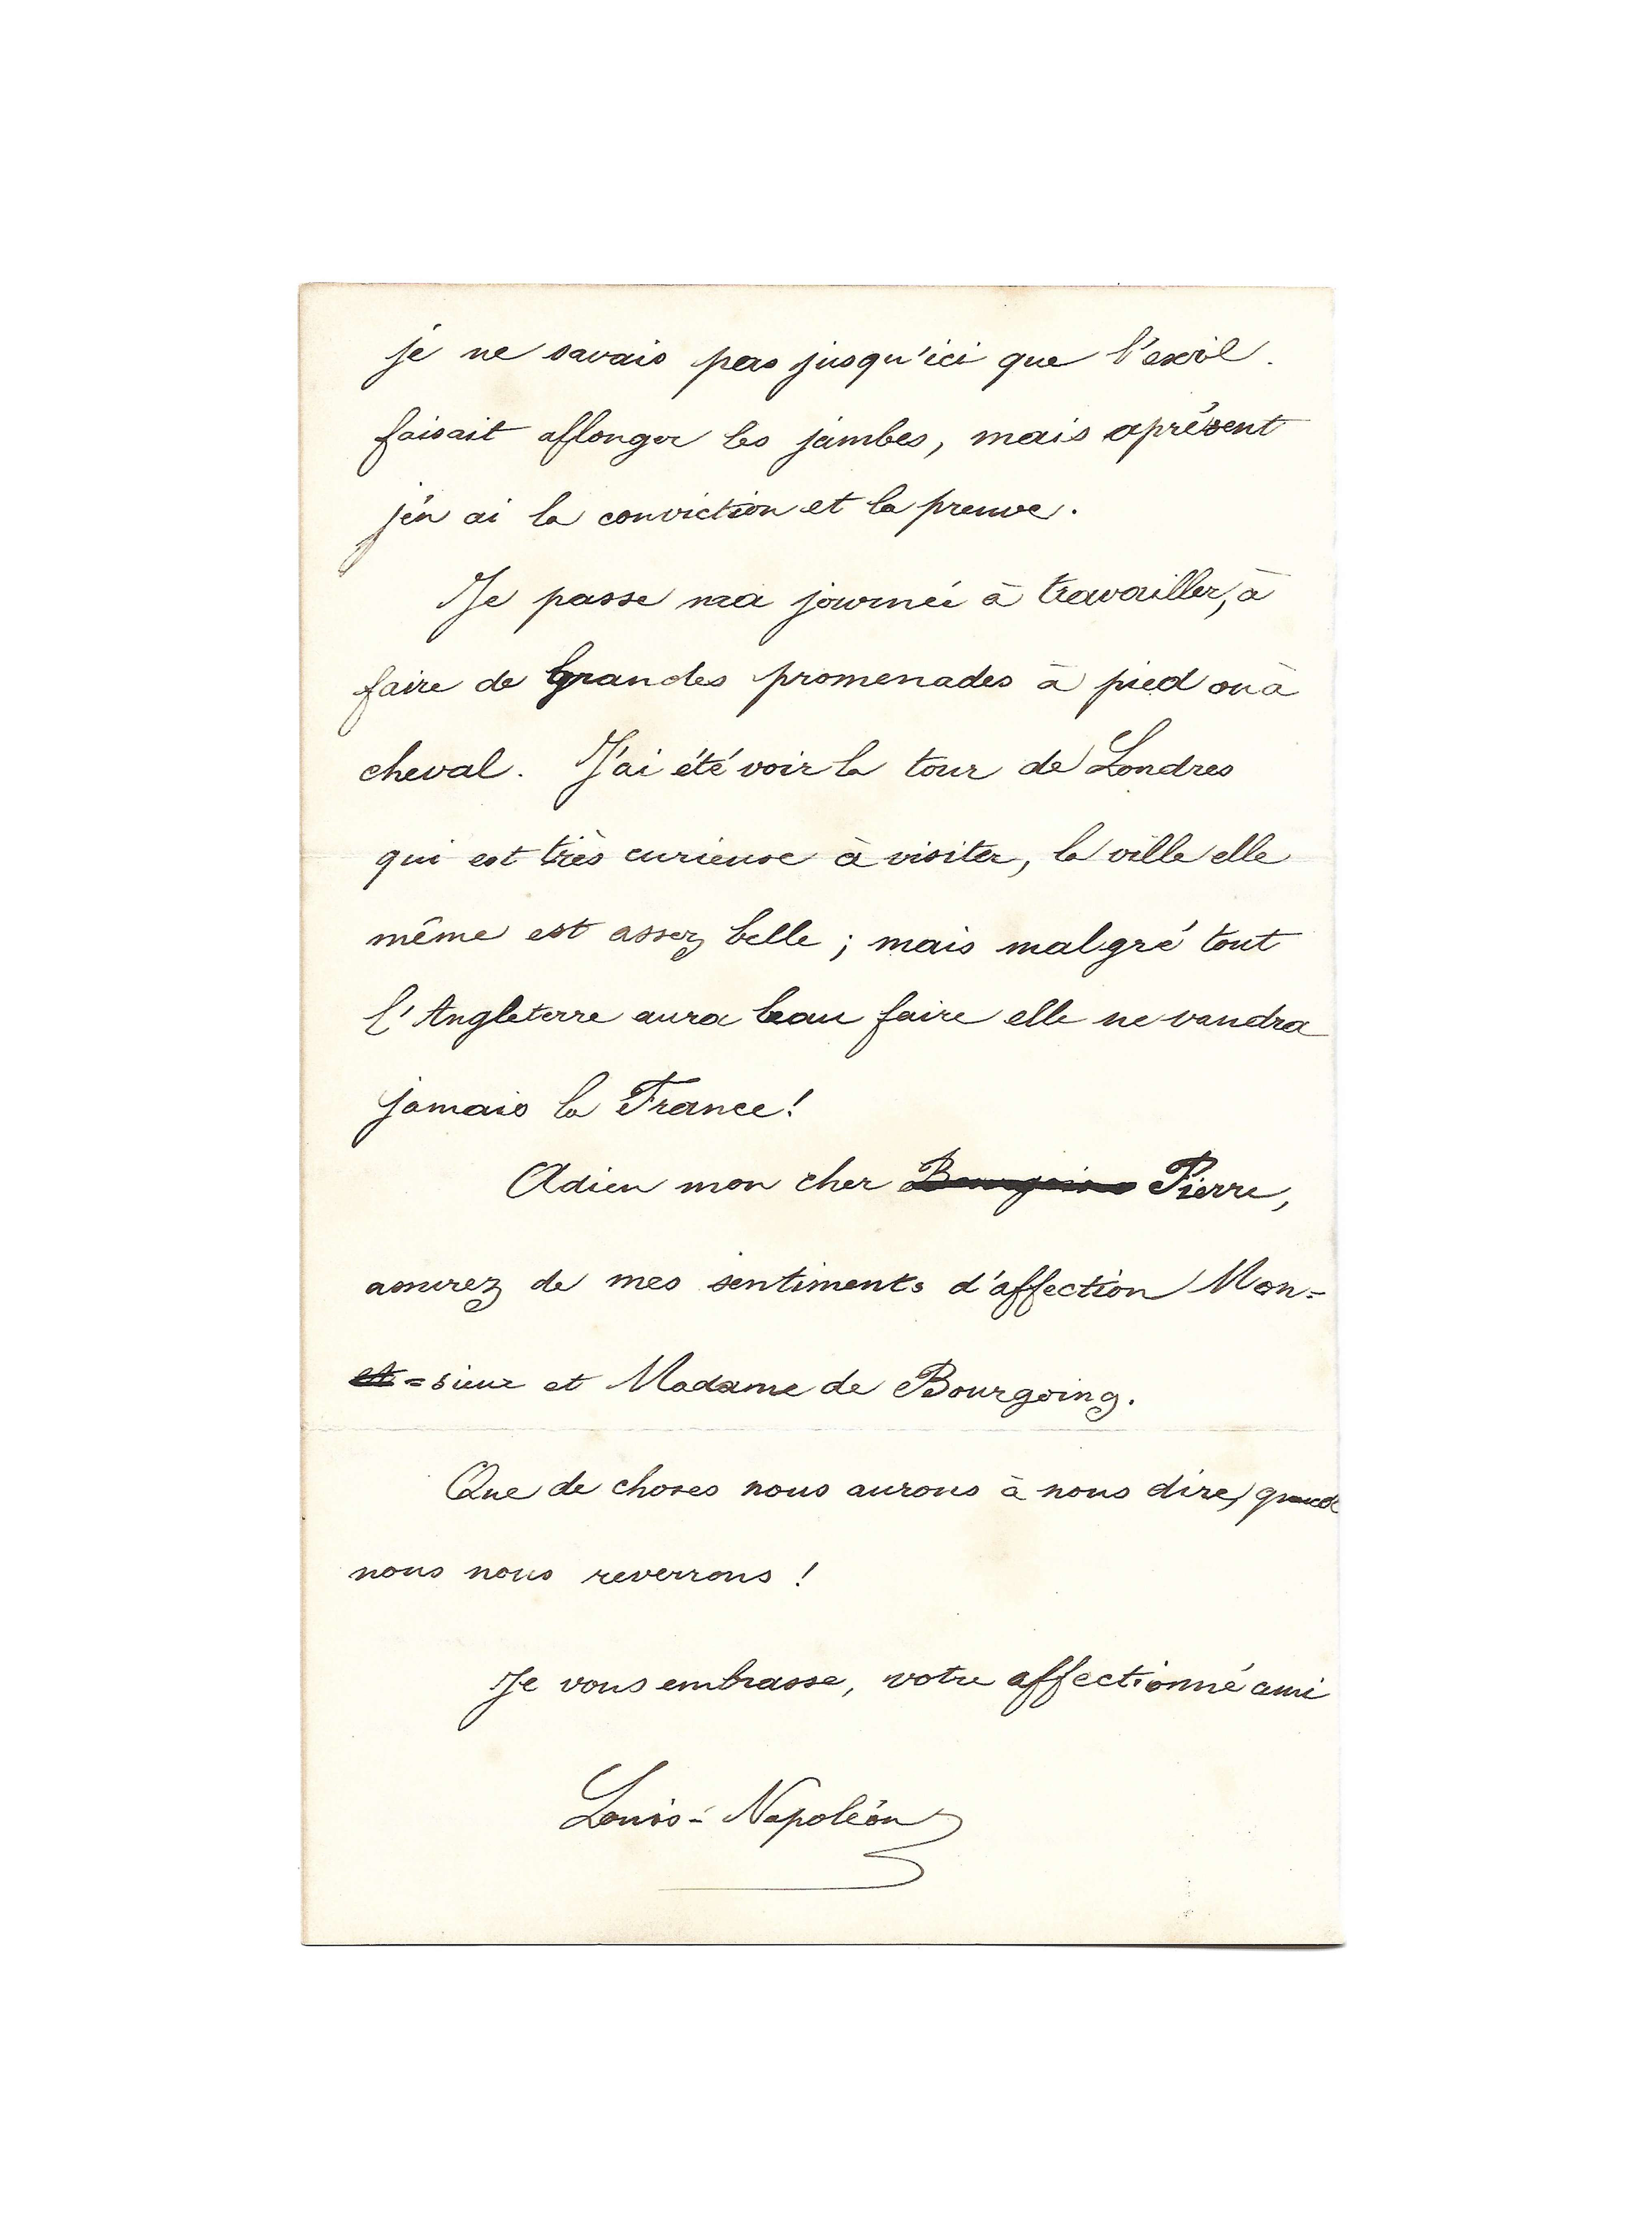 je ne savais pas jusqu'ici que l'exil
faisait allonger les jambes, mais aprésent
j'en ai la conviction et la preuve.
Je passe ma journée à travailler, à
faire de grandes promenades à pied ou à
cheval. J'ai été voir la tour de Londres
qui est très curieuse à visiter, la ville elle
même est assez belle ; mais malgré tout
l'Angleterre aura beau faire elle ne vaudra
jamais la France !
Adieu mon cher Bourgoing Pierre,
assurez de mes sentiments d'affection Mon=
et =sieur et Madame de Bourgoing.
Que de choses nous aurons à nous dire, quand
nous nous reverrons !
Je vous embrasse, votre affectionné ami
Louis-Napoléon